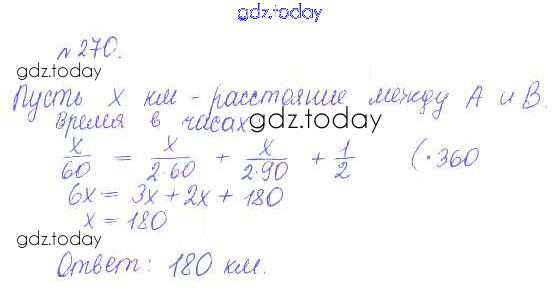 gdz.today
№270.
gdz.today
Пусть x км - расстояние между A и B.
Время в часах gdz.today
x/60 = x/2·60 + x/2·90 + 1/2 (·360
6x = 3x + 2x + 180
x = 180
gdz.today
gdz.today
Ответ: 180 км.